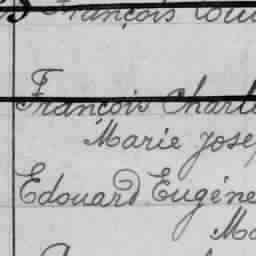 François Loui
François Charle
Marie Josep
Edouard Eugéne
Ma